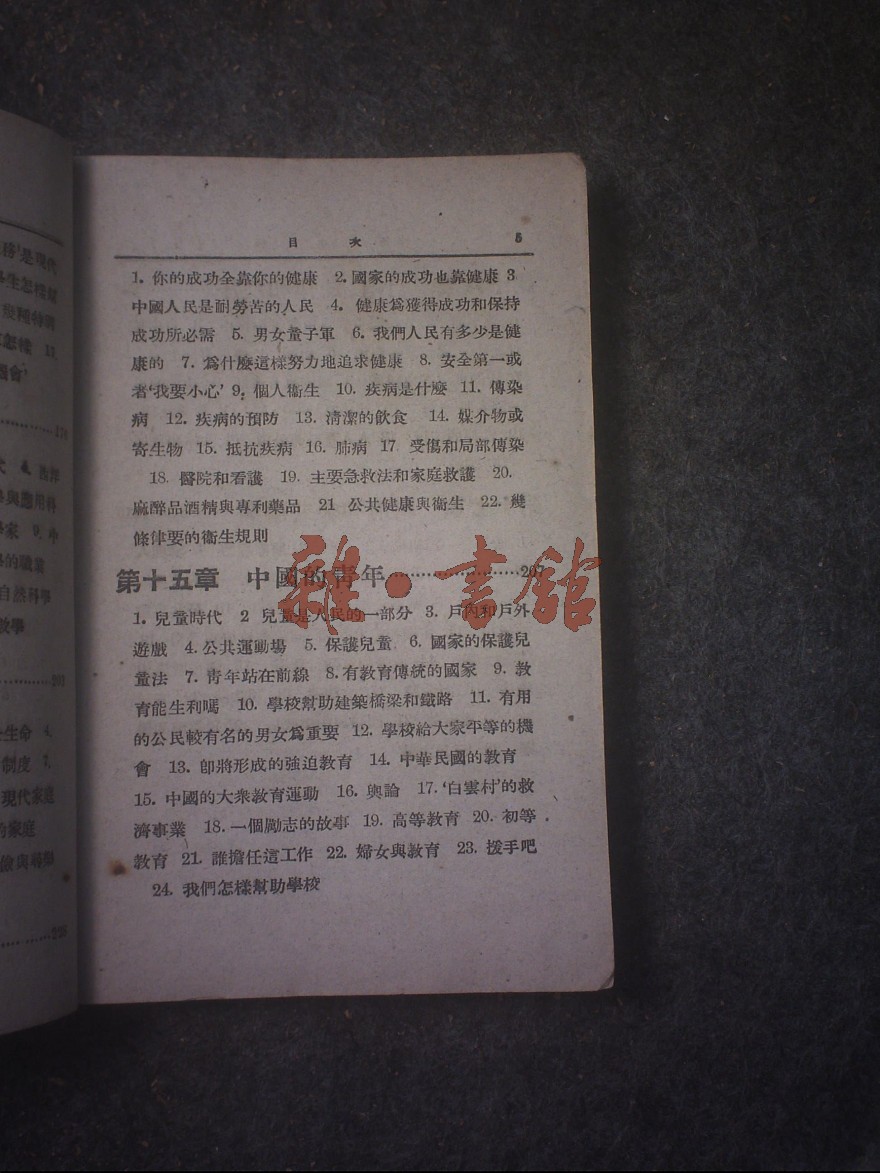 務'是現代
生怎樣幫
幾種特別
怎樣 13.
機會
270
4. 西洋
學與應用科
學家 9. 中
學的職業
自然科學
數學
生命 4.
制度 7.
現代家庭
的家庭
儉與尋樂
目 次 5
1. 你的成功全靠你的健康 2. 國家的成功也靠健康 3
中國人民是耐勞苦的人民 4. 健康爲獲得成功和保持
成功所必需 5. 男女童子軍 6. 我們人民有多少是健
康的 7. 爲什麼這樣努力地追求健康 8. 安全第一或
者'我要小心' 9. 個人衞生 10. 疾病是什麼 11. 傳染
病 12. 疾病的預防 13. 清潔的飲食 14. 媒介物或
寄生物 15. 抵抗疾病 16. 肺病 17 受傷和局部傳染
18. 醫院和看護 19. 主要急救法和家庭救護 20.
麻醉品酒精與專利藥品 21 公共健康與衞生 22. 幾
條律要的衞生規則
第十五章 中國的靑年························267
1. 兒童時代 2 兒童是人民的一部分 3. 戶內和戶外
遊戲 4. 公共運動場 5. 保護兒童 6. 國家的保護兒
童法 7. 靑年站在前線 8. 有教育傳統的國家 9. 教
育能生利嗎 10. 學校幫助建築橋梁和鐵路 11. 有用
的公民較有名的男女爲重要 12. 學校給大家平等的機
會 13. 卽將形成的強迫教育 14. 中華民國的教育
15. 中國的大衆教育運動 16. 輿論 17. '白雲村'的救
濟事業 18. 一個勵志的故事 19. 高等教育 20. 初等
教育 21. 誰擔任這工作 22. 婦女與教育 23. 援手吧
24. 我們怎樣幫助學校
雜·書館